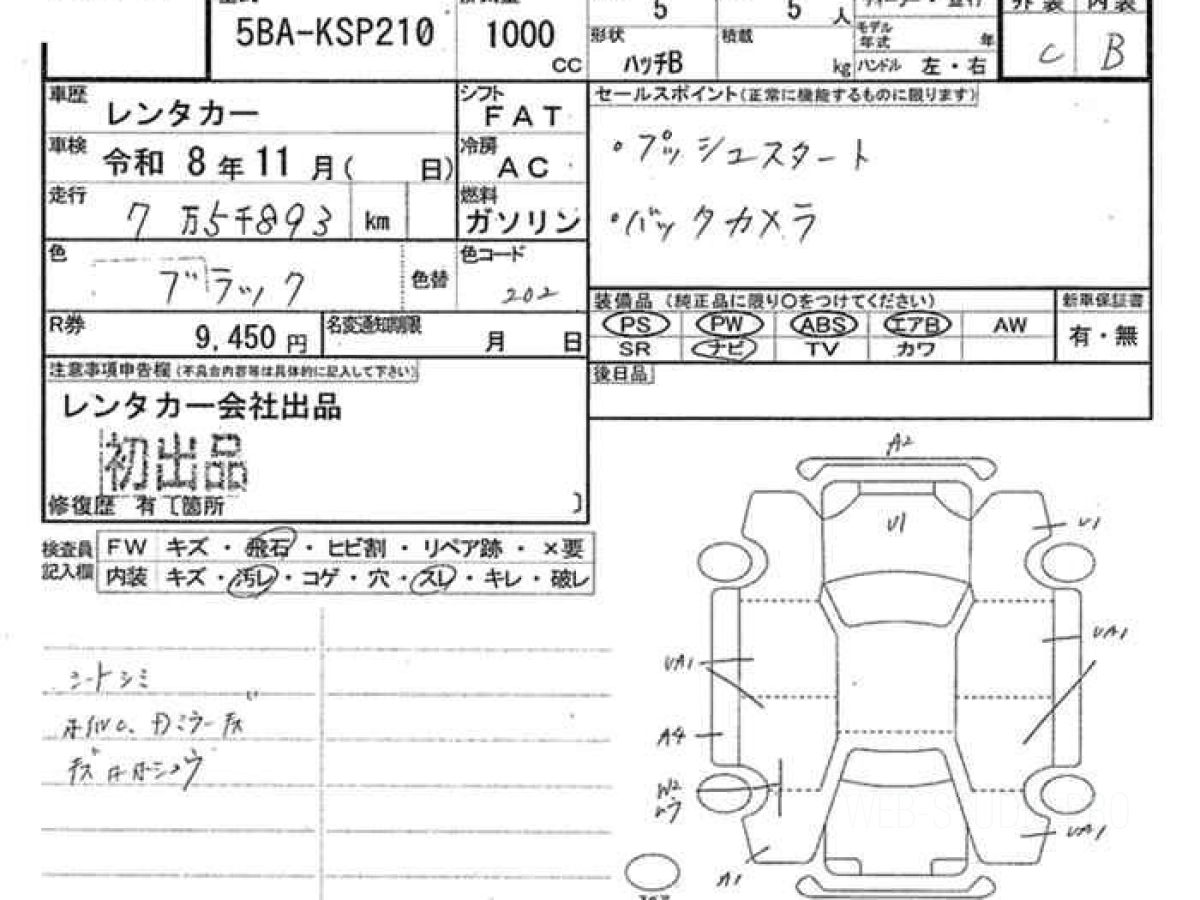 5BA-KSP210
1000
CC
5
5
人
形状
ハッチB
積載
kg
モデル
年式
年
ハンドル 左・右
外装 内装
C B
車歴
レンタカー
シフト
FAT
車検
令和 8年11月( 日)
冷房
AC
走行
7万5千893 km
燃料
ガソリン
色
ブラック
色替
色コード
202
R券
9,450円
名変通知期限
月 日
セールスポイント(正常に機能するものに限ります)
・プッシュスタート
・バックカメラ
装備品 (純正品に限り○をつけてください)
新車保証書
PS PW ABS エアB AW
有・無
SR ナビ TV カワ
後日品
注意事項申告欄(不具合内容等は具体的に記入して下さい)
レンタカー会社出品
初出品
修復歴 有〔箇所 〕
検査員
記入欄
FW キズ・飛石・ヒビ割・リペア跡・×要
内装 キズ・汚レ・コゲ・穴・スレ・キレ・破レ
シートシミ
A2
U1
U1
UA1
UA1
A4
W2
ムラ
UA1
A1
WEB-STUDIO.PRO